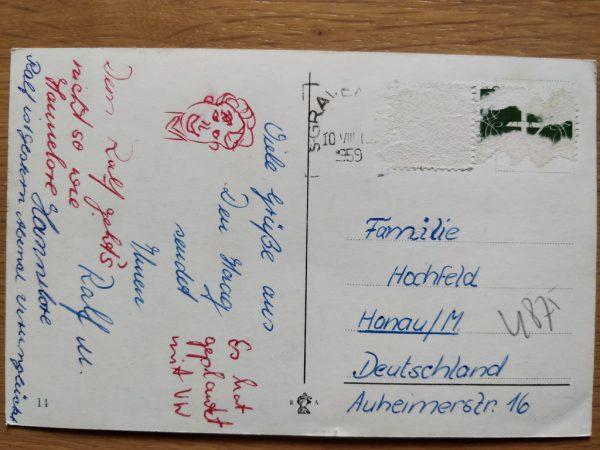 Viele Grüße aus
Den Haag
sendet
Ihnen
Ralf u.
Hannelore
Es hat
geplautzt
mit VW
Dem Ralf geht's
nicht so wie
Hannelore
Ralf ist gestern
14
B A
S-GRAVEN
10 VIII
1959
Familie
Hochfeld
Hanau/M.
Deutschland
Auheimerstr. 16